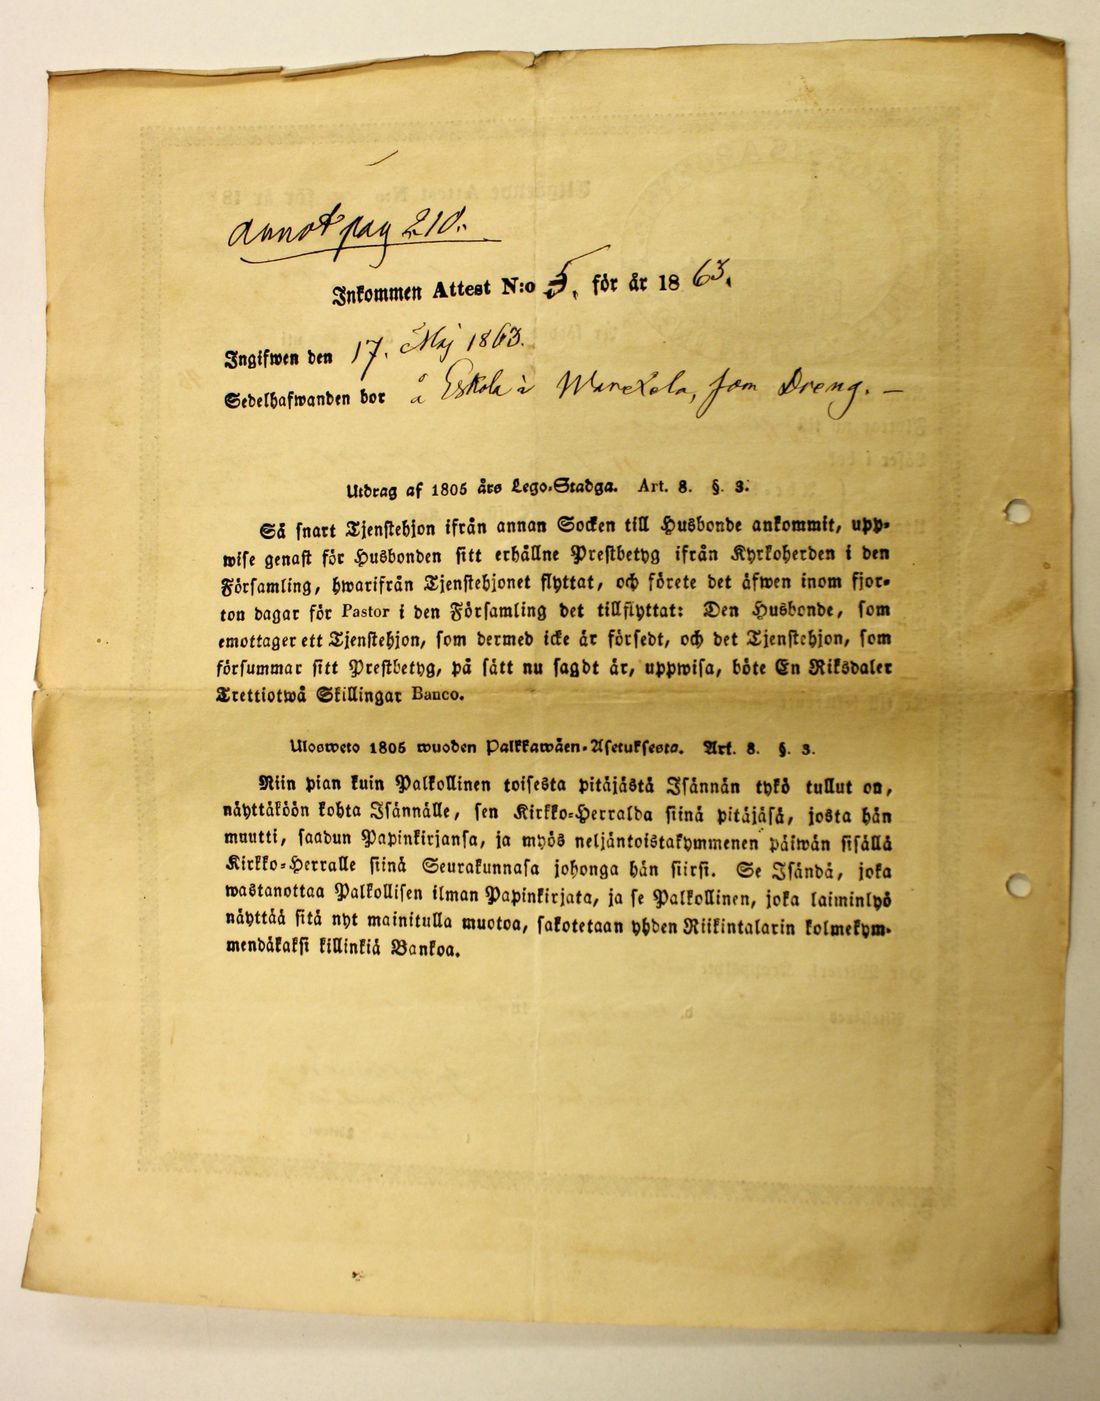 annot pag 210.
Inkommen Attest N:o 5. för år 1863.
Ingifwen den 17. Maj 1863.
Sedelhafwanden bor å Eskola i Marckela, som Dreng. —
Utdrag af 1805 års Lego-Stadga. Art. 8. §. 3.
Så snart Tjenstehjon ifrån annan Socken till Husbonde ankommit, upp-
wise genast för Husbonden sitt erhållne Prestbetyg ifrån Kyrkoherden i den
Församling, hwarifrån Tjenstehjonet flyttat, och förete det äfwen inom fjor-
ton dagar för Pastor i den Församling det tillflyttat: Den Husbonde, som
emottager ett Tjenstehjon, som dermed icke är försedt, och det Tjenstehjon, som
försummar sitt Prestbetyg, på sätt nu sagdt är, uppwisa, böte En Riksdaler
Trettiotwå Skillingar Banco.
Ulosweto 1805 wuoden Palkkawäen-Asetuksesta. Art. 8. §. 3.
Niin pian kuin Palkollinen toisesta pitäjästä Isännän tykö tullut on,
näyttäköön kohta Isännälle, sen Kirkko-Herralda siinä pitäjäsä, josta hän
muutti, saadun Papinkirjansa, ja myös neljäntoistakymmenen päiwän sisällä
Kirkko-Herralle siinä Seurakunnasa johonga hän siirsi. Se Isändä, joka
wastanottaa Palkollisen ilman Papinkirjata, ja se Palkollinen, joka laiminlyö
näyttää sitä nyt mainitulla muotoa, sakotetaan yhden Riikintalarin kolmekym-
mendäkaksi killinkiä Bankoa.